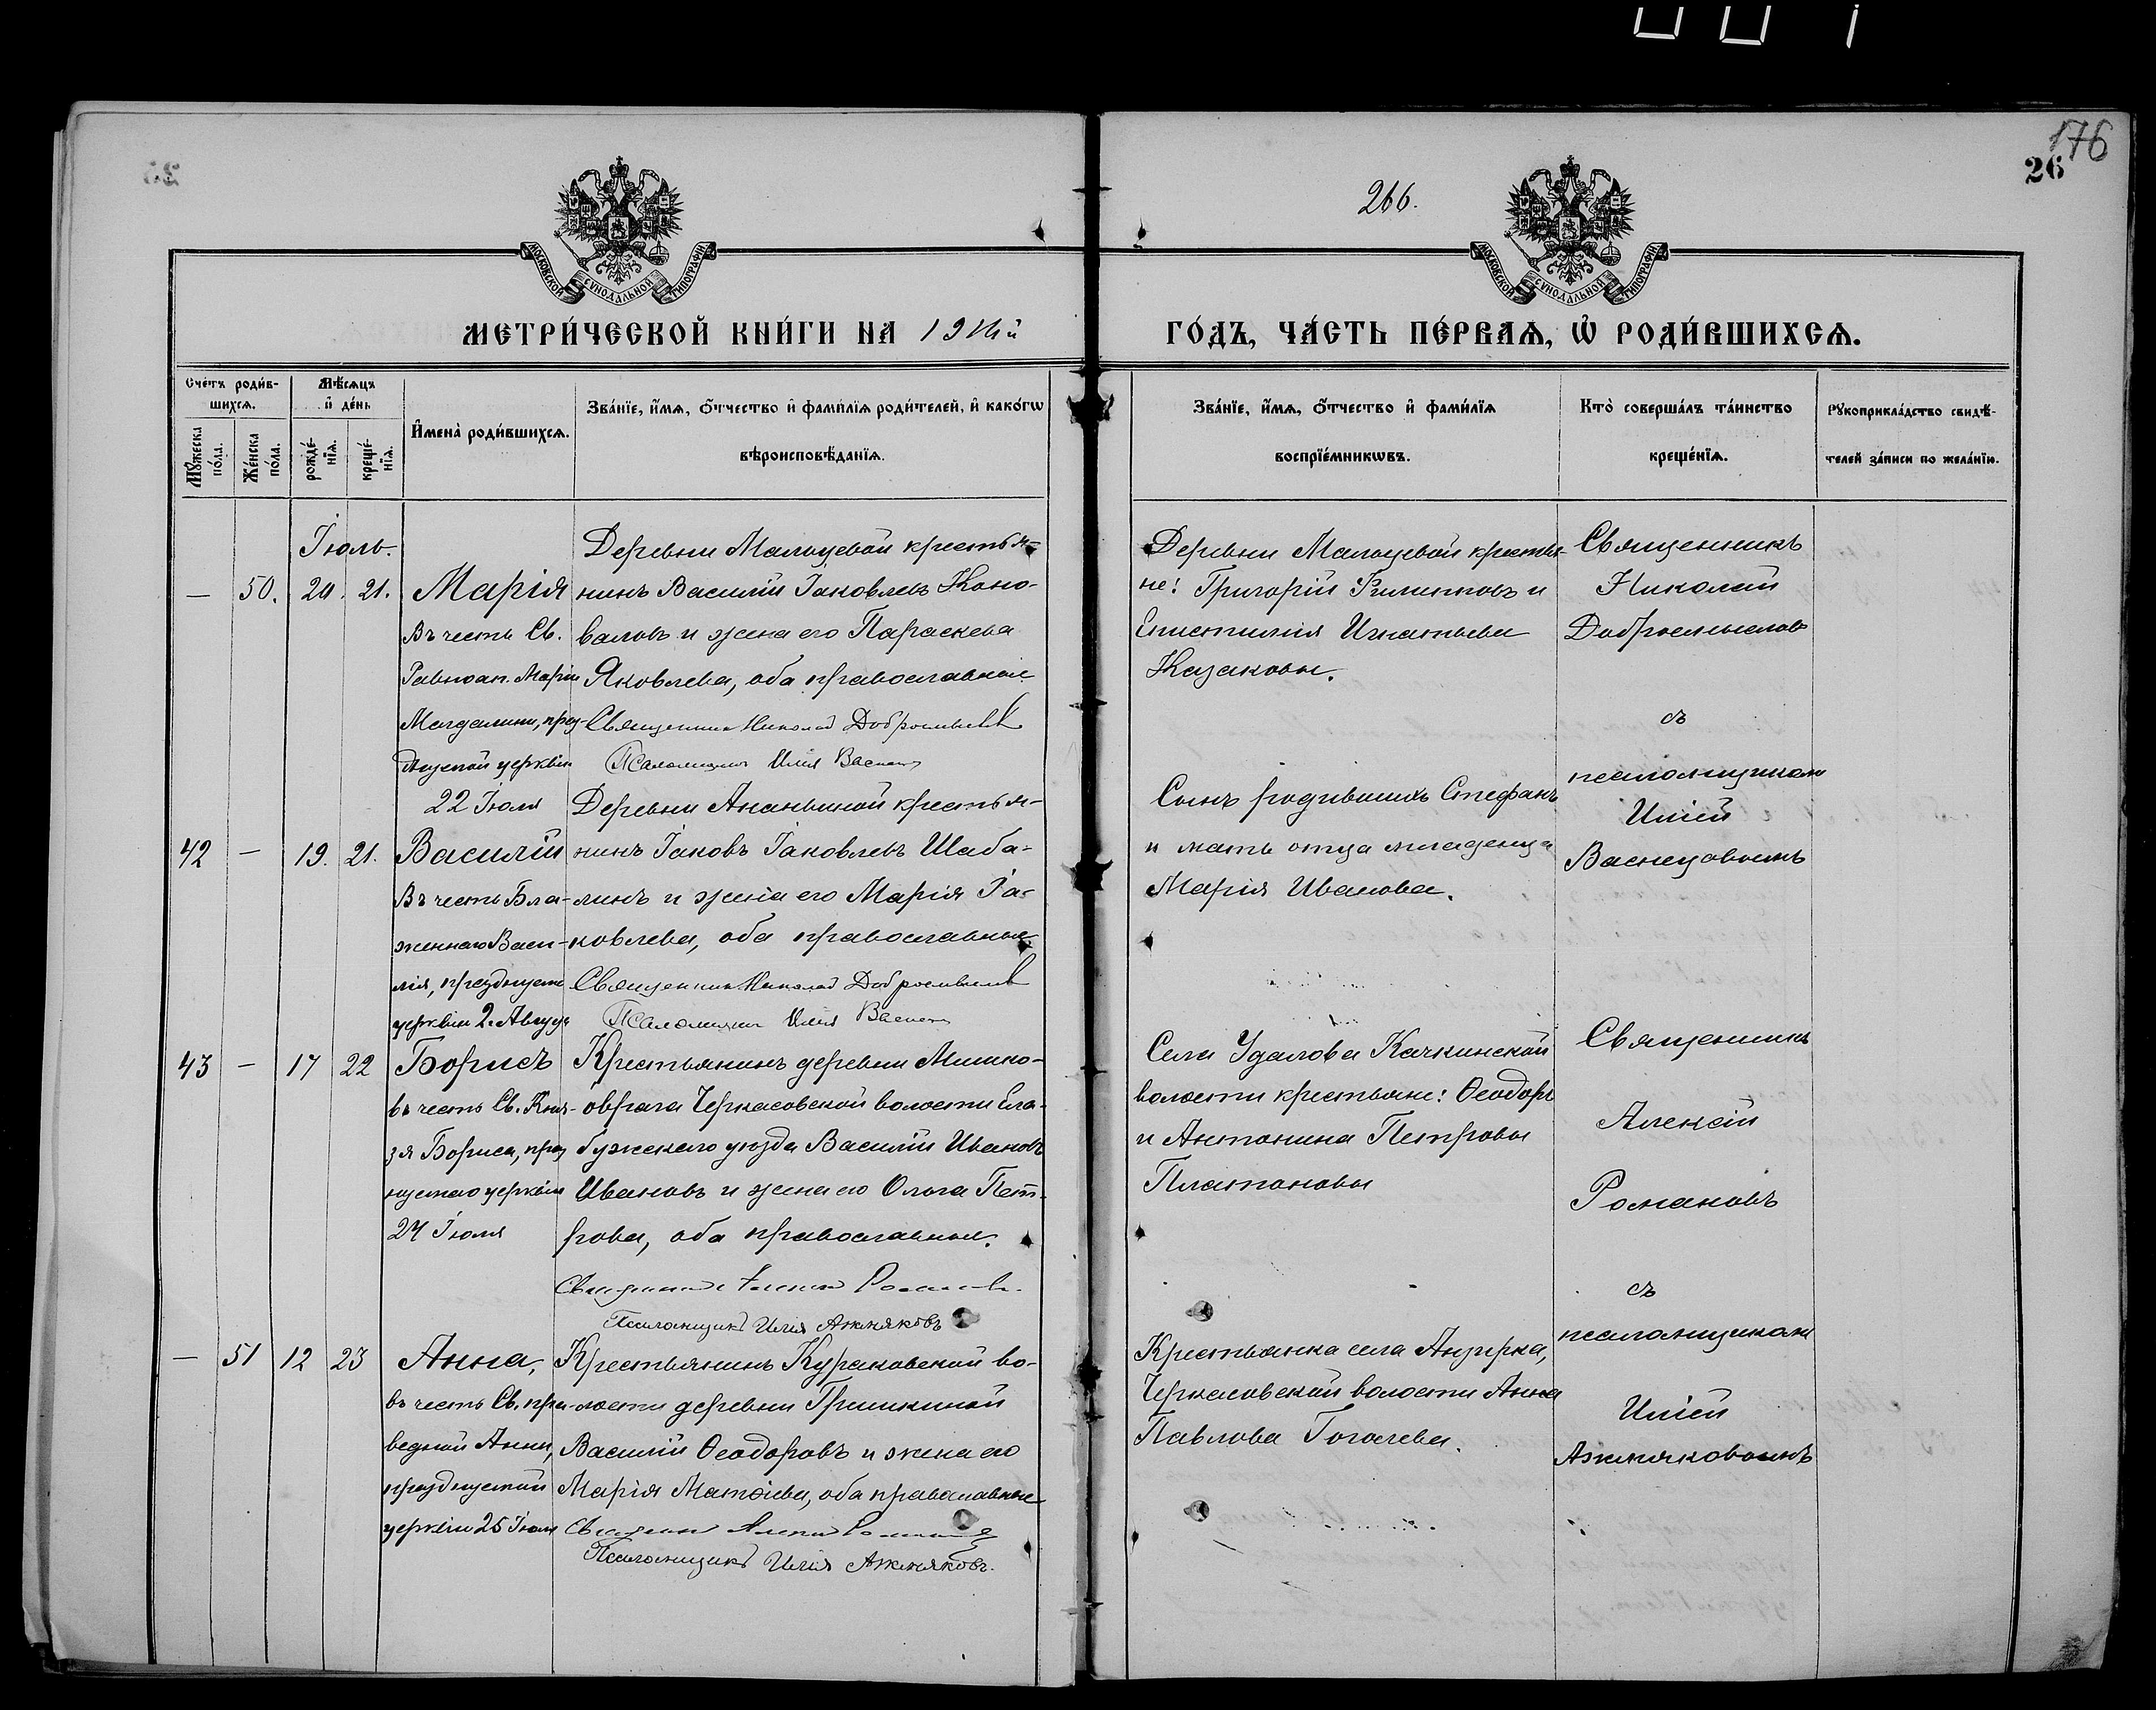 176
26
266.
МОСКОВСКОЙ СѴНОДАЛЬНОЙ ТИПОГРАФІИ
МОСКОВСКОЙ СѴНОДАЛЬНОЙ ТИПОГРАФІИ
МЕТРИ́ЧЕСКОЙ КНИ́ГИ НА 19
ГО́ДЪ, ЧА́СТЬ ПЕ́РВАѦ, Ѡ҆ РОДИ́ВШИХСѦ.
Сче́тъ роди́в-
шихсѧ.
Мꙋжеска по́ла.
Же́нска по́ла.
Мѣ́сѧцъ
и҆ де́нь
рожде́-
нїѧ.
креще́-
нїѧ.
И҆мена̀ роди́вшихсѧ.
Зва́нїе, и҆́мѧ, ѻ҆́тчество и҆ фами́лїѧ роди́телей, и҆ како́гѡ
вѣроисповѣ́данїѧ.
Зва́нїе, и҆́мѧ, ѻ҆́тчество и҆ фами́лїѧ
воспрїе́мникѡвъ.
Кто̀ соверша́лъ та́инство
креще́нїѧ.
Рꙋкоприкла́дство свидѣ́-
телей за́писи по жела́нїю.
Іюль.
— 50. 20. 21. Марія
Въ честь Св.
Равноап. Маріи
Магдалины, праз-
днуемой церквію
22 Іюля
Деревни Мальцевой крестья-
нинъ Василій Іаковлевъ Коно-
валовъ и жена его Параскева
Яковлева, оба православные
Священникъ Николай Добросмысловъ
Псаломщикъ Илія Васнецовъ
Деревни Мальцевой крестья-
не: Григорій Филипповъ и
Епистимія Игнатьева
Казаковы.
Священникъ
Николай
Добросмысловъ
съ
псаломщикомъ
Иліей
Васнецовымъ
42 — 19. 21. Василій
Въ честь Бла-
женнаго Васи-
лія, празднуем.
церквію 2. Августа
Деревни Ананьиной крестья-
нинъ Іаковъ Іаковлевъ Шаба-
линъ и жена его Марія Іа-
ковлева, оба православные
Священникъ Николай Добросмысловъ
Псаломщикъ Илія Васнецовъ
Сынъ родившихъ Стефанъ
и мать отца младенца
Марія Иванова.
43 — 17 22 Борисъ
въ честь Св. Кня-
зя Бориса, праз
нуемаго церквію
24 Іюля
Крестьянинъ деревни
оврага Черкасовской волости Ела-
бужскаго уѣзда Василій Ивановъ
Ивановъ и жена его Ольга Пет-
рова, оба православные.
Священникъ Алексій Романовъ.
Псаломщикъ Илія Ажмяковъ
Села Удалова Качкинской
волости крестьяне: Ѳеодоръ
и Антонина Петровы
Платоновы
Священникъ
Алексій
Романовъ
съ
псаломщикомъ
Иліей
Ажмяковымъ
— 51 12 23 Анна,
въ честь Св. пра-
ведной Анны,
празднуемой
церквію 25 Іюля
Крестьянинъ Кураковской во-
лости деревни Гришкиной
Василій Ѳеодоровъ и жена его
Марія Матѳіева, оба православные
Священникъ Алексій Романовъ
Псаломщикъ Илія Ажмяковъ.
Крестьянка села Анзирка,
Черкасовской волости Анна
Павлова Гоголева.